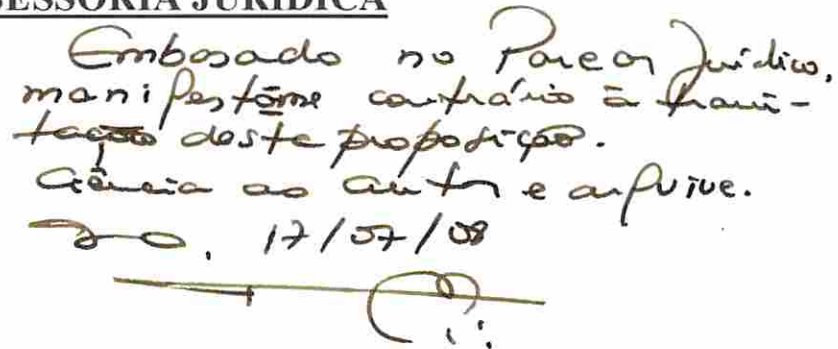 SESSORIA JURÍDICA
Embasado no Parecer Jurídico,
manifestõme contrário à trami-
tação desta proposição.
Ciência ao autor e arquive.
17/07/08